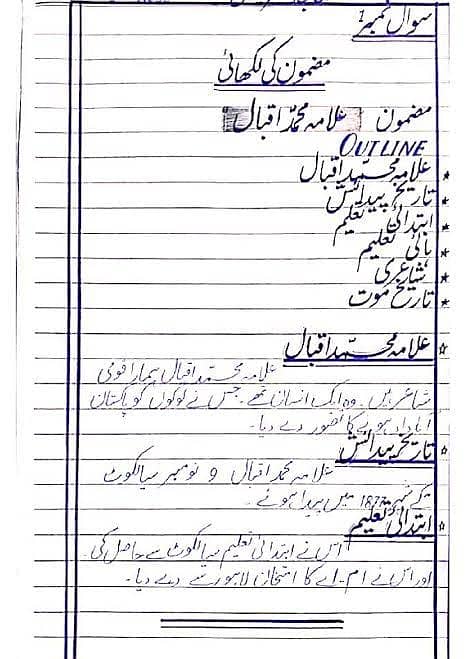 سوال نمبر 1
مضمون کی لکھائی
مضمون علامہ محمد اقبال
OUTLINE
* علامہ محمد اقبال
* تاریخ پیدائش
* ابتدائی تعلیم
* ہائی تعلیم
* شاعری
* تاریخ موت
☆ علامہ محمد اقبال
علامہ محمد اقبال ہمارا قومی
شاعر ہیں۔ وہ ایک انسان تھے۔ جس نے لوگوں کو پاکستان
آباداد ہونے کا تصور دے دیا۔
☆ تاریخ پیدائش
علامہ محمد اقبال 9 نومبر سیالکوٹ
کے شہر 1877 میں پیدا ہوئے۔
☆ ابتدائی تعلیم
اس نے ابتدائی تعلیم سیالکوٹ سے حاصل کی۔
اور اس نے ام۔اے کا امتحان لاہور سے دے دیا۔